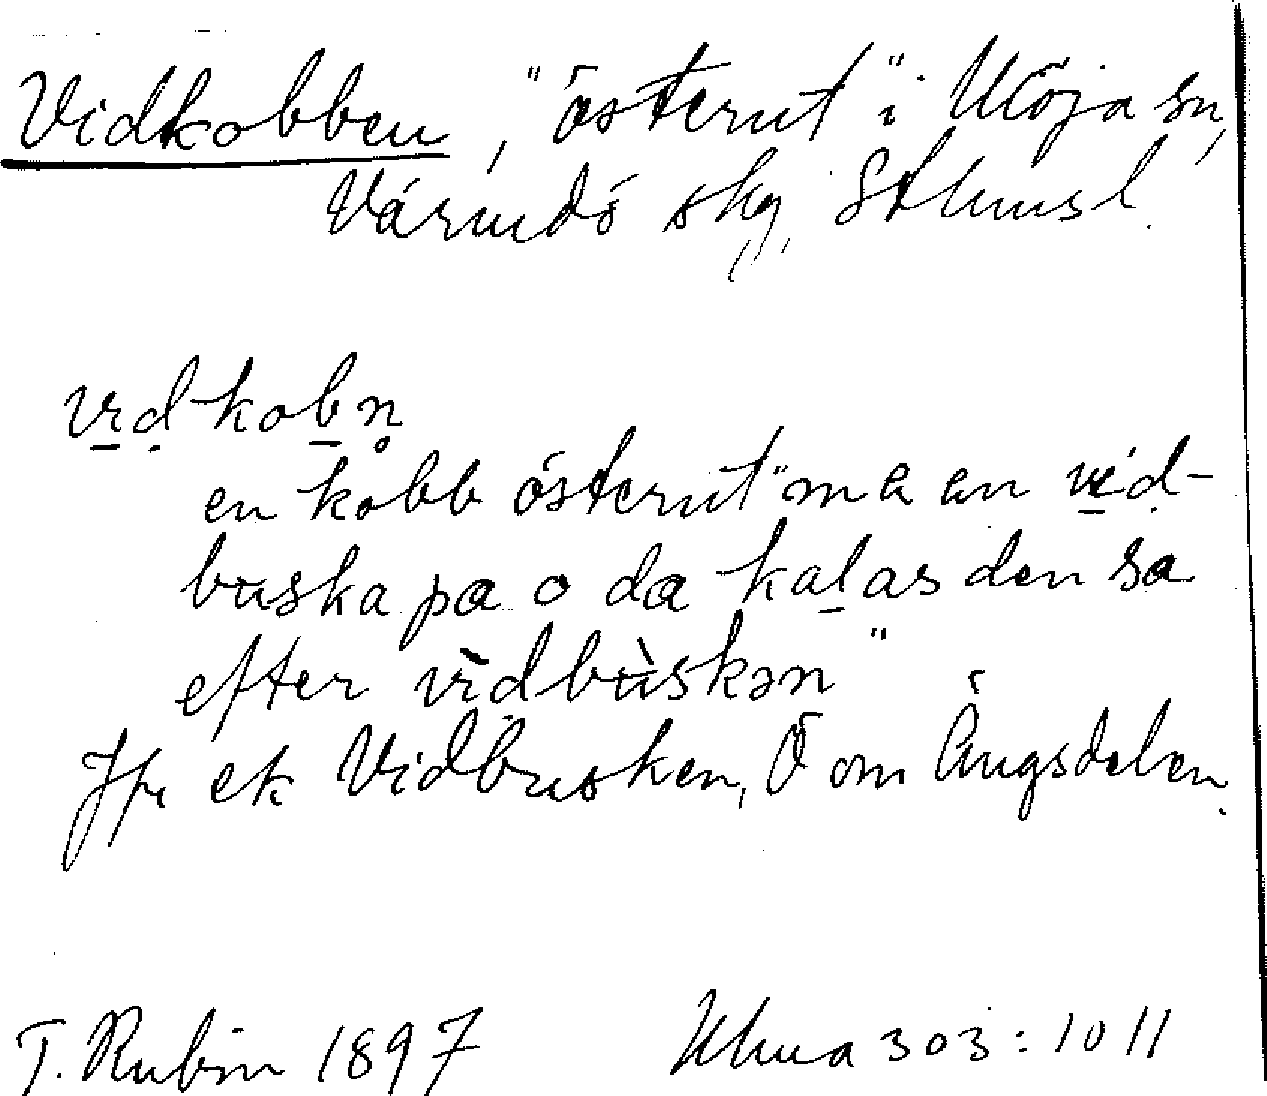 Vidkobben, "österut" i Möja sn,
Värmdö skg, Sthmsl.
vɪd kobn̥
en kobb österut "mɑ en vid-
buska pɑ o dɑ kaḷas den sɑ
efter vìdbùskən"
Jfr ek Vidbusken, Ö om Ängsdelen.
T. Rubin 1897 Ulma 303:1011